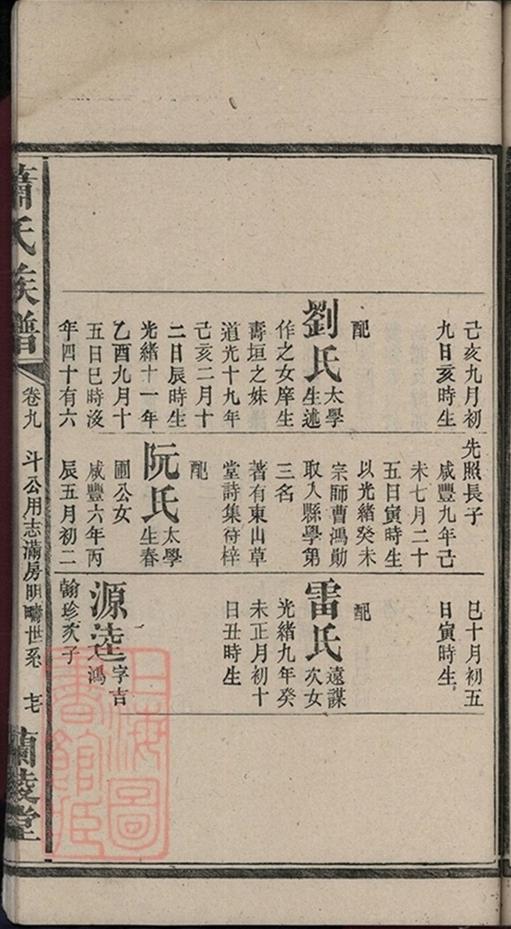 己亥九月初
九日亥時生
配
劉氏太學
生述
作之女庠生
壽垣之妹
道光十九年
己亥二月十
二日辰時生
光緒十一年
乙酉九月十
五日巳時沒
年四十有六
先照長子
咸豐九年己
未七月二十
五日寅時生
以光緒癸未
宗師曹鴻勛
取入縣學第
三名
著有東山草
堂詩集待梓
配
阮氏太學
生春
圃公女
咸豐六年丙
辰五月初二
巳十月初五
日寅時生
配
雷氏遠謀
次女
光緒九年癸
未正月初十
日丑時生
源逵字吉
鴻
翰珍次子
蕭氏族譜
卷九 斗公用志滿房明疇世系
蘭陵堂
上海圖
書館